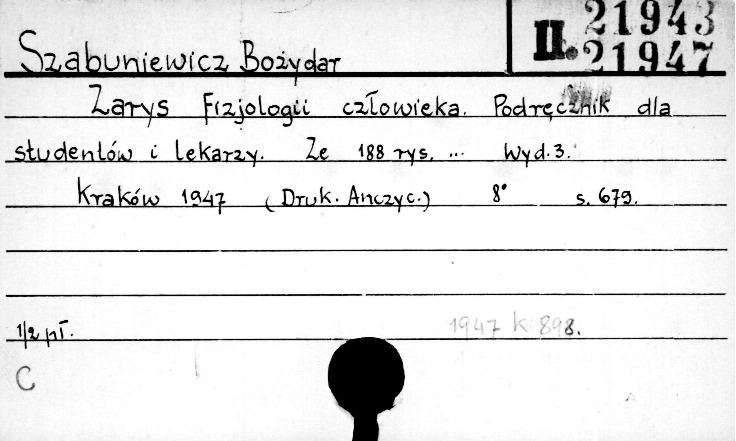 21943
II. 21947
Szabuniewicz Bożydar
Zarys Fizjologii człowieka. Podręcznik dla
studentów i lekarzy. Ze 188 rys. ... Wyd. 3.
Kraków 1947 (Druk. Anczyc.) 8° s. 679.
1/2 pł. 1947 K 898.
C